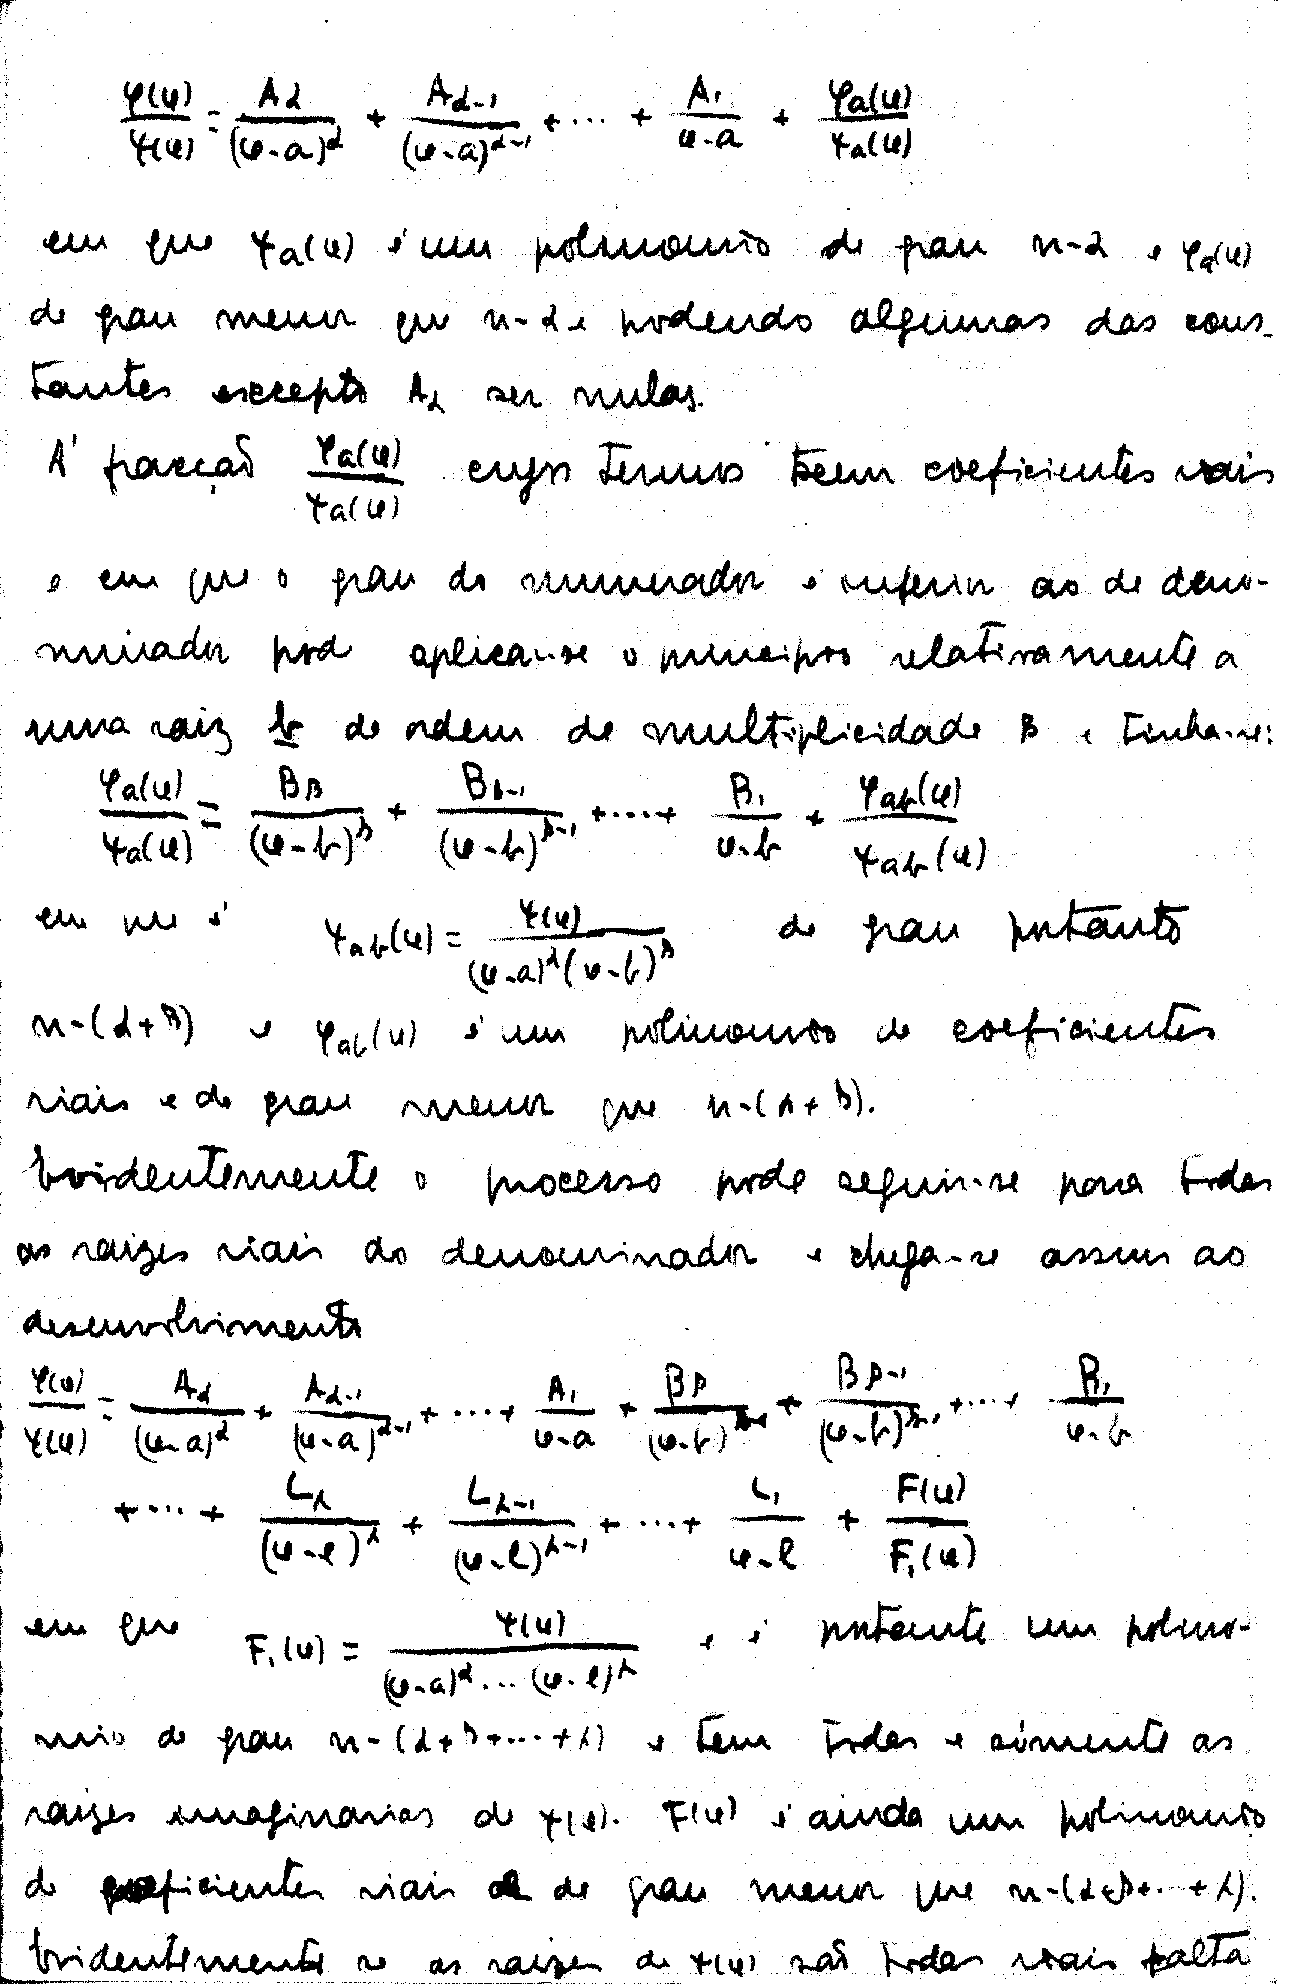 φ(u)/ψ(u) = Aα/(u-a)^α + Aα-1/(u-a)^α-1 + ... + A₁/u-a + φa(u)/ψa(u)
em que ψa(u) é um polinomio de grau n-α e φa(u)
de grau menor que n-α e podendo algumas das cons-
tantes excepto Aα ser nulas.
A' fracção φa(u)/ψa(u) cujos termos teem coeficientes reais
e em que o grau do numerador é inferior ao do deno-
minador pode aplicar-se o principio relativamente a
uma raiz b de ordem de multiplicidade β e tinha-se:
φa(u)/ψa(u) = Bβ/(u-b)^β + Bβ-1/(u-b)^β-1 + .... + B₁/u-b + φab(u)/ψab(u)
em que é ψab(u) = ψ(u)/(u-a)^α(u-b)^β de grau portanto
n-(α+β) e φab(u) é um polinomio de coeficientes
riais e de grau menor que n-(α+β).
Evidentemente o processo pode seguir-se para todas
as raizes riais do denominador e chega-se assim ao
desenvolvimento
φ(u)/ψ(u) = Aα/(u-a)^α + Aα-1/(u-a)^α-1 + ... + A₁/u-a + Bβ/(u-b)^β + Bβ-1/(u-b)^β-1 + ... + B₁/u-b
+ ... + Lλ/(u-l)^λ + Lλ-1/(u-l)^λ-1 + ... + L₁/u-l + F(u)/F₁(u)
em que F₁(u) = ψ(u)/(u-a)^α...(u-l)^λ e é portanto um polino-
mio de grau n-(α+β+...+λ) e tem todas e sómente as
raizes imaginarias de ψ(u). F(u) é ainda um polinomio
de coeficientes riais e de grau menor que n-(α+β+...+λ).
Evidentemente se as raizes de ψ(u) são todas reais falta